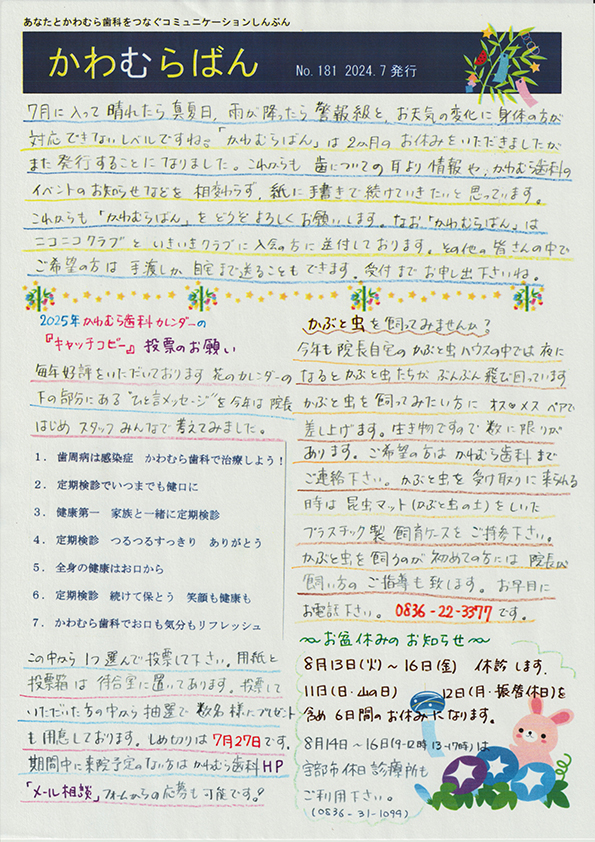 あなたとかわむら歯科をつなぐコミュニケーションしんぶん
かわむらばん
No.181 2024.7発行
7月に入って晴れたら真夏日、雨が降ったら警報級と、お天気の変化に身体の方が
対応できないレベルですね。「かわむらばん」は2ヵ月のお休みをいただきましたが
また発行することになりました。これからも歯についての耳より情報や、かわむら歯科の
イベントのお知らせなどを相変わらず、紙に手書きで続けていきたいと思っています。
これからも「かわむらばん」をどうぞよろしくお願いします。なお「かわむらばん」は
ニコニコクラブといきいきクラブに入会の方に送付しております。その他の皆さんの中で
ご希望の方は手渡しか自宅まで送ることもできます。受付までお申し出下さいね。
2025年かわむら歯科カレンダーの
『キャッチコピー』投票のお願い
毎年好評をいただいております花のカレンダーの
下の部分にある“ひと言メッセージ”を今年は院長
はじめスタッフみんなで考えてみました。
1. 歯周病は感染症 かわむら歯科で治療しよう!
2. 定期検診でいつまでも健口に
3. 健康第一 家族と一緒に定期検診
4. 定期検診 つるつるすっきり ありがとう
5. 全身の健康はお口から
6. 定期検診 続けて保とう 笑顔も健康も
7. かわむら歯科でお口も気分もリフレッシュ
この中から1つ選んで投票して下さい。用紙と
投票箱は待合室に置いてあります。投票して
いただいた方の中から抽選で数名様にプレゼント
も用意しております。しめ切りは7月27日です。
期間中に来院予定のない方はかわむら歯科HP
「メール相談」フォームからの応募も可能です!
かぶと虫を飼ってみませんか?
今年も院長自宅のかぶと虫ハウスの中では夜に
なるとかぶと虫たちがぶんぶん飛び回っています
かぶと虫を飼ってみたい方にオス♡メスペアで
差し上げます。生き物ですので数に限りが
あります。ご希望の方はかわむら歯科まで
ご連絡下さい。かぶと虫を受け取りに来られる
時は昆虫マット(かぶと虫の土)をしいた
プラスチック製飼育ケースをご持参下さい。
かぶと虫を飼うのが初めての方には院長が
飼い方のご指導も致します。お早目に
お電話下さい。0836-22-3377です。
〜お盆休みのお知らせ〜
8月13日(火)〜16日(金) 休診します。
11日(日・山の日) 12日(月・振替休日)を
含め6日間のお休みになります。
8月14日〜16日(9-12時 13-17時)は
宇部市休日診療所も
ご利用下さい。
(0836-31-1099)